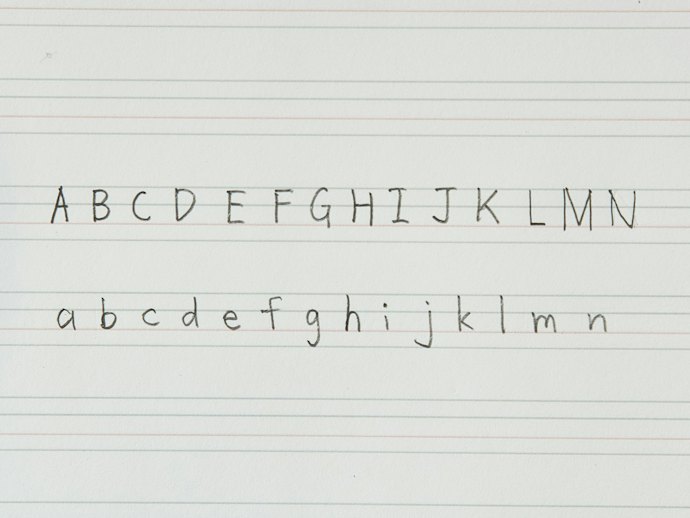 A B C D E F G H I J K L M N
a b c d e f g h i j k l m n